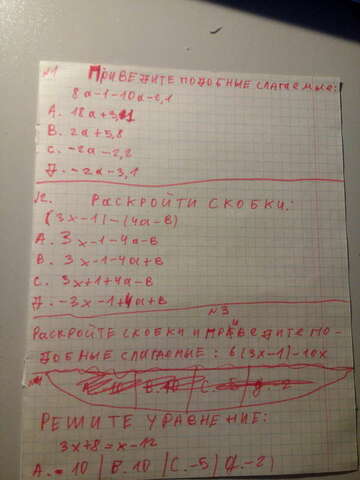 №1 Приведите подобные слагаемые:
8a-1-10a-2,1
A. 18a+3,1
B. 2a+5,8
C. -2a-2,2
Д. -2a-3,1
№2. Раскройти скобки:
(3x-1)-(4a-B)
A. 3x-1-4a-B
B. 3x-1-4a+B
C. 3x+1+4a-B
Д. -3x-1+4a+B
№3
Раскройте скобки и приведите по-
добные слагаемые: 6(3x-1)-10x
A. 10 | B. 10 | C. -5 | Д. -2
Решите уравнение:
3x+8=x-12
A. -10 | B. 10 | C. -5 | Д. -2)